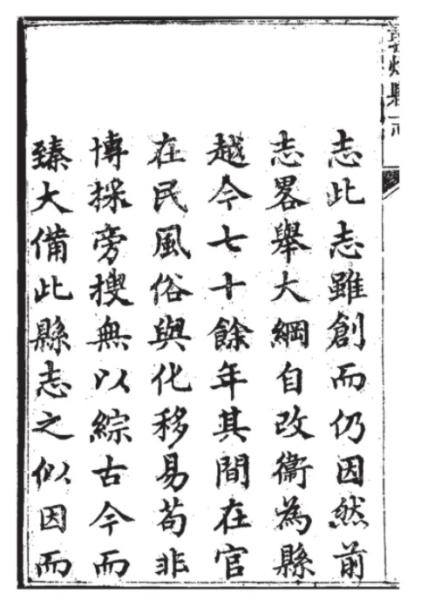 敦煌縣志
志此志雖創而仍因然前
志畧舉大綱自改衞為縣
越今七十餘年其間在官
在民風俗與化移易苟非
博採旁搜無以綜古今而
臻大備此縣志之似因而